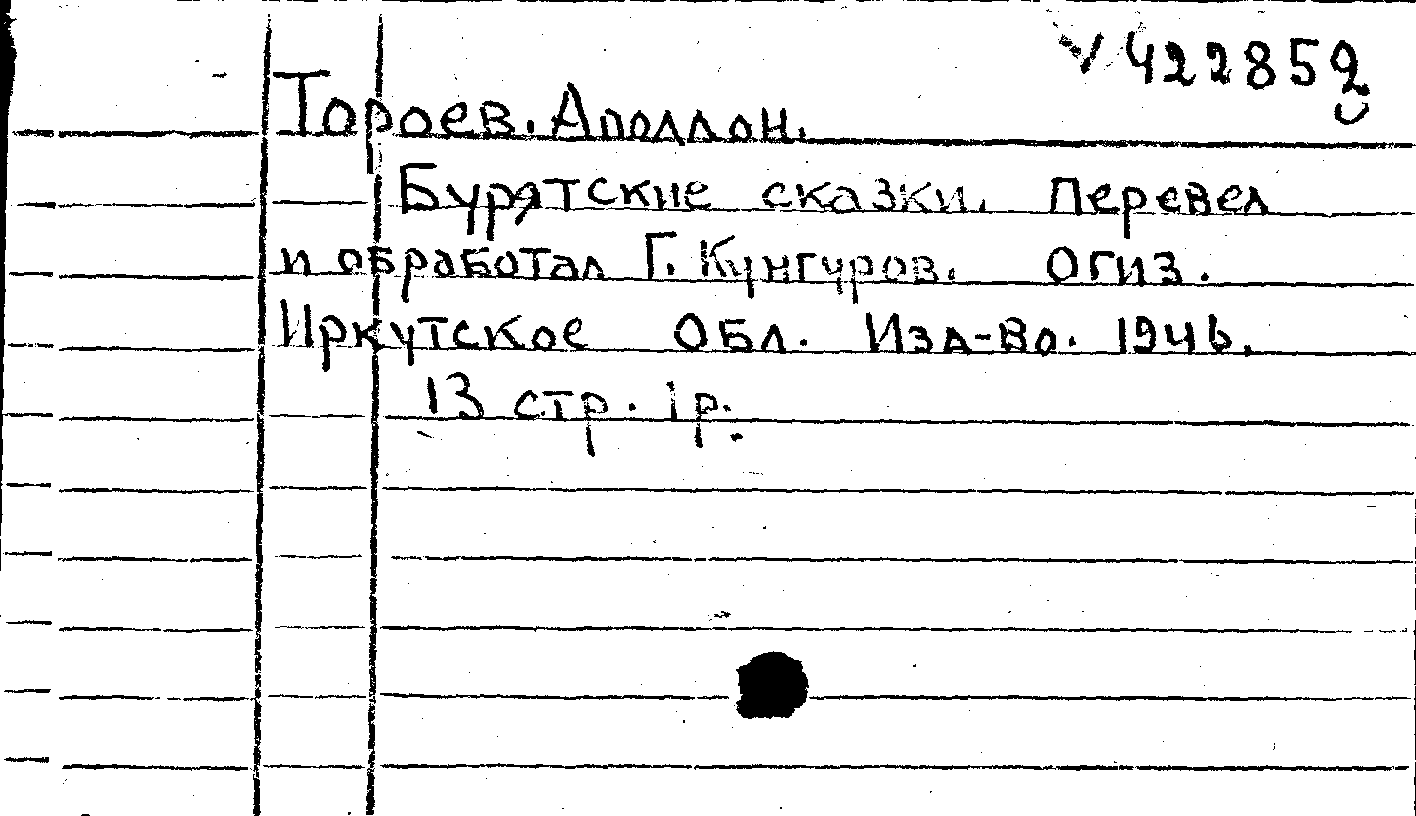 √422852
Тороев. Аполлон.
Бурятские сказки. Перевел
и обработал Г. Кунгуров. ОГИЗ.
Иркутское Обл. Изд-во. 1946.
13 стр. 1р.